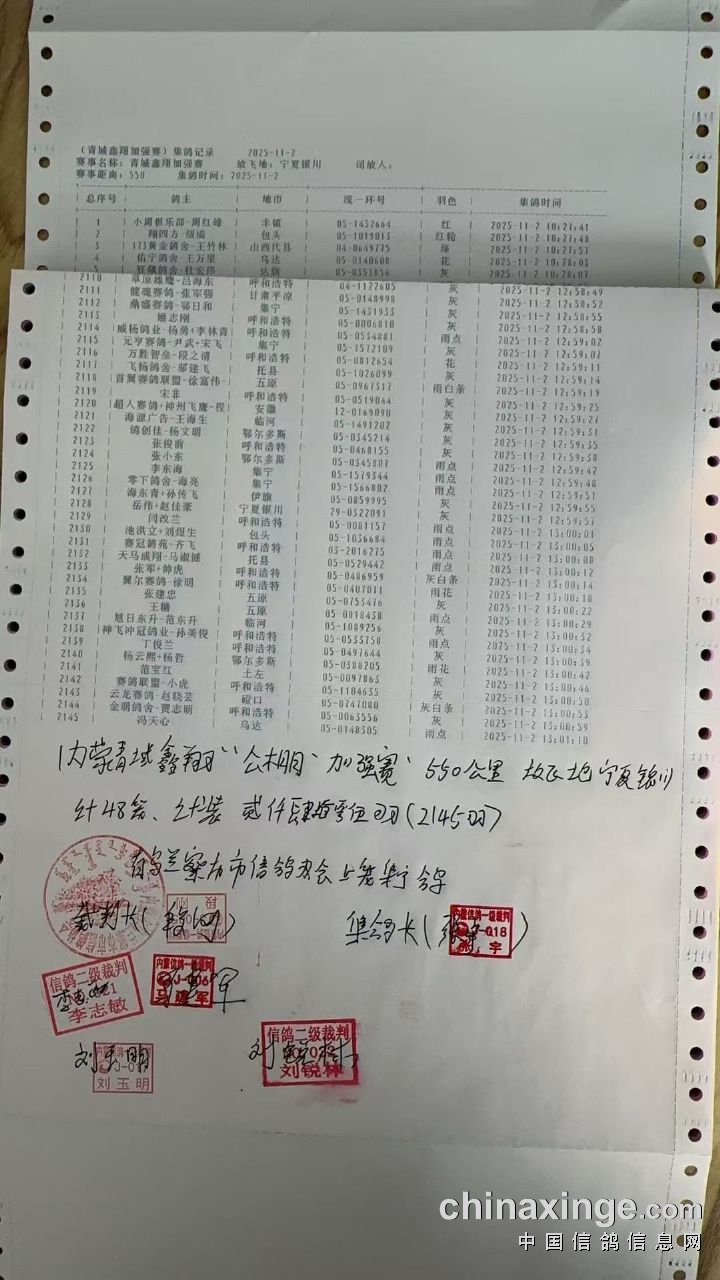 (青城鑫翔加强赛)集鸽记录 2025-11-2
赛事名称: 青城鑫翔加强赛 放飞地: 宁夏银川 司放人:
赛事距离: 550 集鸽时间: 2025-11-2
总序号 鸽主 地市 统一环号 羽色 集鸽时间
1 小周俱乐部-周红峰 丰镇 05-1432664 红 2025-11-2 10:27:41
2 翔四方-纽溢 包头 05-1019013 红轮 2025-11-2 10:27:48
3 173黄金鸽舍-王竹林 山西代县 04-0649775 绛 2025-11-2 10:28:03
4 佑宁鸽舍-王万里 乌达 05-0140608 花 2025-11-2 10:28:03
5 狂飙鸽舍-杜宏伟 达旗 05-0353854 灰 2025-11-2 10:28:07
2110 草原雄鹰-吕海东 呼和浩特 04-1122605 灰 2025-11-2 12:58:49
2111 龍魂赛鸽-张军强 甘肃平凉 05-0148998 灰 2025-11-2 12:58:52
2112 鼎盛赛鸽-鄂日和 集宁 05-1431933 灰 2025-11-2 12:58:55
2113 姬志刚 呼和浩特 05-0006810 灰 2025-11-2 12:58:58
2114 威扬鸽业-杨勇+李林青 呼和浩特 05-0534881 雨点 2025-11-2 12:59:02
2115 元亨赛鸽-尹武+宋飞 集宁 05-1572109 灰 2025-11-2 12:59:07
2116 万胜智垒-段之清 呼和浩特 05-0812654 花 2025-11-2 12:59:11
2117 飞扬鸽舍-邬建飞 托县 05-1026099 灰 2025-11-2 12:59:14
2118 首翼赛鸽联盟-徐富伟- 五原 05-0967317 雨白条 2025-11-2 12:59:19
2119 宋非 呼和浩特 05-0519044 灰 2025-11-2 12:59:25
2120 超人赛鸽+神州飞鹰-程 安徽 12-0169090 灰 2025-11-2 12:59:27
2121 海源广告-王海生 临河 05-1491202 灰 2025-11-2 12:59:31
2122 鸽创佳-杨文明 鄂尔多斯 05-0345214 灰 2025-11-2 12:59:35
2123 张俊前 呼和浩特 05-0468155 灰 2025-11-2 12:59:38
2124 张小东 鄂尔多斯 05-0345807 雨点 2025-11-2 12:59:42
2125 李东海 集宁 05-1579344 雨点 2025-11-2 12:59:48
2126 零下鸽舍-海亮 集宁 05-1566802 雨点 2025-11-2 12:59:51
2127 海东青+孙传飞 伊旗 05-0859995 灰 2025-11-2 12:59:55
2128 岳伟+赵佳豪 宁夏银川 29-0322091 灰 2025-11-2 12:59:57
2129 闫改兰 呼和浩特 05-0081157 雨点 2025-11-2 13:00:01
2130 池洪立+刘煜生 包头 05-1036684 雨点 2025-11-2 13:00:05
2131 赛冠鸽苑-齐飞 呼和浩特 03-2016275 雨点 2025-11-2 13:00:08
2132 天马成翔-马淑健 托县 05-0529442 雨点 2025-11-2 13:00:12
2133 张军+帅虎 呼和浩特 05-0486959 灰白条 2025-11-2 13:00:14
2134 翼尔赛鸽-徐明 呼和浩特 05-0407011 雨花 2025-11-2 13:00:18
2135 张建忠 五原 05-0753476 灰 2025-11-2 13:00:22
2136 王楠 五原 05-0818430 雨点 2025-11-2 13:00:29
2137 旭日东升-范东升 临河 05-1089256 灰 2025-11-2 13:00:32
2138 神飞冲冠鸽业-孙美俊 呼和浩特 05-0533758 雨点 2025-11-2 13:00:34
2139 丁俊兰 呼和浩特 05-0497644 灰 2025-11-2 13:00:39
2140 杨云熙+杨哲 鄂尔多斯 05-0388205 雨花 2025-11-2 13:00:42
2141 范宝红 土左 05-0097863 灰 2025-11-2 13:00:46
2142 赛鸽联盟-小虎 呼和浩特 05-1104635 灰 2025-11-2 13:00:50
2143 云龙赛鸽-赵晓芸 磴口 05-0747080 灰白条 2025-11-2 13:00:53
2144 金朋鸽舍-贾志明 呼和浩特 05-0063556 灰 2025-11-2 13:00:59
2145 冯天心 乌达 05-0148305 雨点 2025-11-2 13:01:10
内蒙青城鑫翔"公棚"加强赛"550公里 放飞地宁夏银川
计48笼、计装 贰仟肆拾零伍羽(2145羽)
乌兰察布市信鸽协会上笼集鸽
裁判长( ) 集鸽长( )
内蒙信鸽一级裁判
信鸽二级裁判
李志敏
内蒙信鸽一级裁判
马建军
刘玉明
刘玉明
信鸽二级裁判
刘锐林
chinaxinge.com
中国信鸽信息网